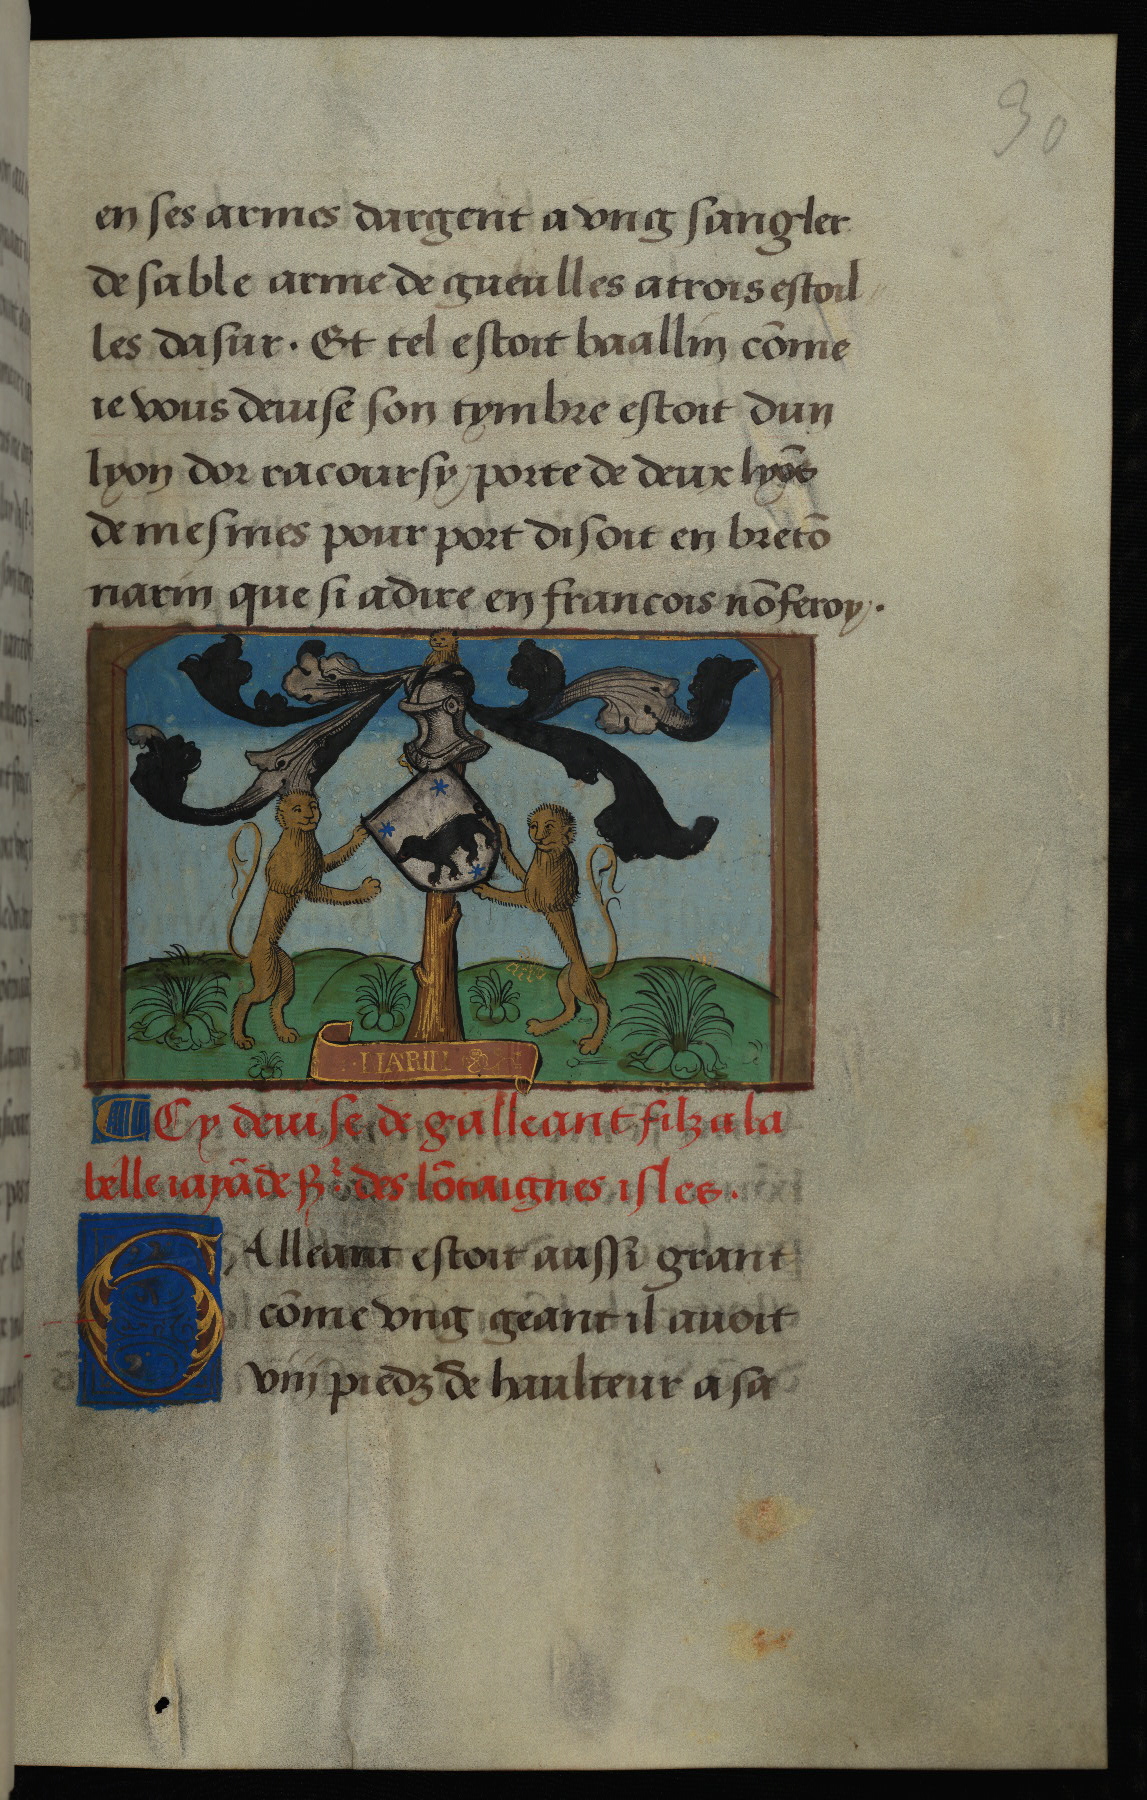 30
en ses armes dargent a vng sangler
de sable arme de gueulles a trois estoil
les dasur. Et tel estoit baallin cõme
ie vous deuise son tymbre estoit dun
lyon dor racoursy porte de deux lyõs
de mesmes pour port disoit en bretõ
narin que si adire en francois nõferoy.
NARIN
Cy deuise de galleant filz a la
belle iayãde  des lõtaignes isles.
GAlleant estoit aussi grant
cõme vng geant il auoit
viij piedz de haulteur a sa